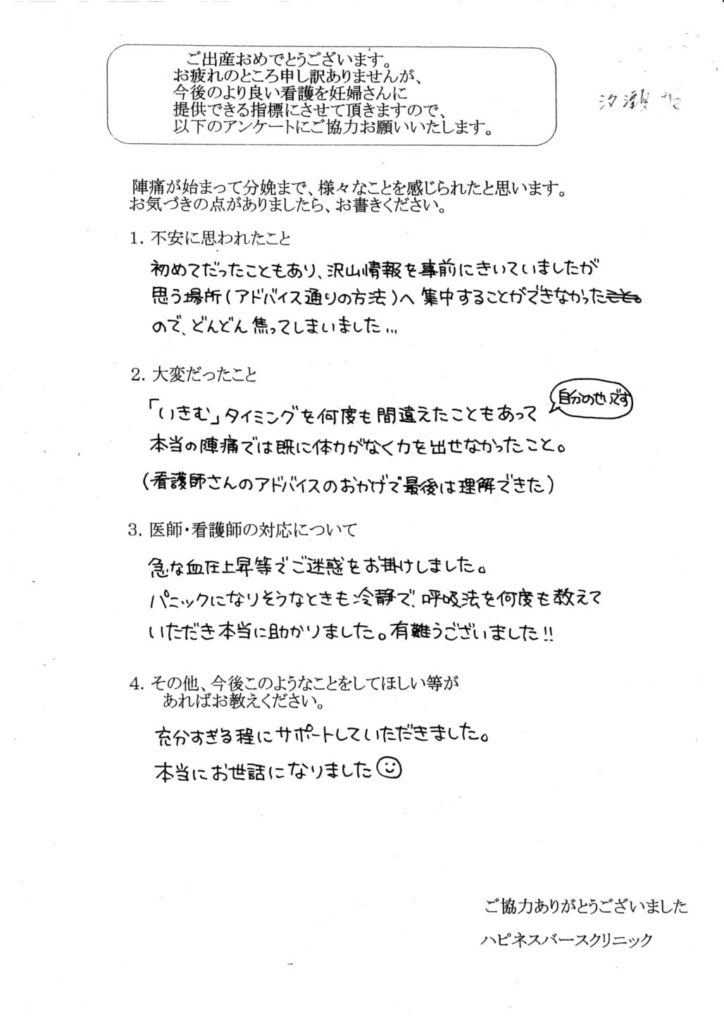 ご出産おめでとうございます。
お疲れのところ申し訳ありませんが、
今後のより良い看護を妊婦さんに
提供できる指標にさせて頂きますので、
以下のアンケートにご協力お願いいたします。
陣痛が始まって分娩まで、様々なことを感じられたと思います。
お気づきの点がありましたら、お書きください。
1. 不安に思われたこと
初めてだったこともあり、沢山情報を事前にきいていましたが
思う場所(アドバイス通りの方法)へ集中することができなかった
ので、どんどん焦ってしまいました…
2. 大変だったこと
自分のせいです
「いきむ」タイミングを何度も間違えたこともあって
本当の陣痛では既に体力がなく力を出せなかったこと。
(看護師さんのアドバイスのおかげで最後は理解できた)
3. 医師・看護師の対応について
急な血圧上昇等でご迷惑をお掛けしました。
パニックになりそうなときも冷静で、呼吸法を何度も教えて
いただき本当に助かりました。有難うございました!!
4. その他、今後このようなことをしてほしい等が
あればお教えください。
充分すぎる程にサポートしていただきました。
本当にお世話になりました
ご協力ありがとうございました
ハピネスバースクリニック